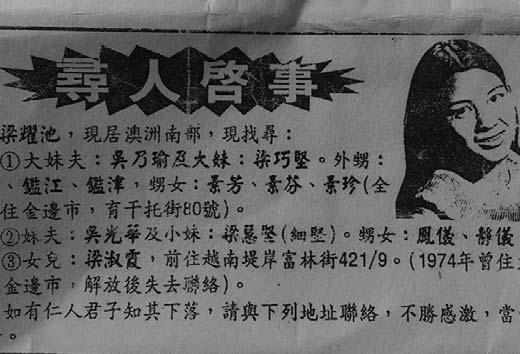 尋人啓事
梁耀池，現居澳洲南部，現找尋：
①大妹夫：吳乃瑜及大妹：梁巧堅。外甥：
、鑑江、鑑津，甥女：景芳、景芬、景珍(全
住金邊市，育干托街80號)。
②妹夫：吳光華及小妹：梁惠堅(細堅)。甥女：鳳儀、靜儀
③女兒：梁淑霞，前住越南堤岸富林街421/9。(1974年曾住
金邊市，解放後失去聯絡)。
如有仁人君子知其下落，請與下列地址聯絡，不勝感激，當
。